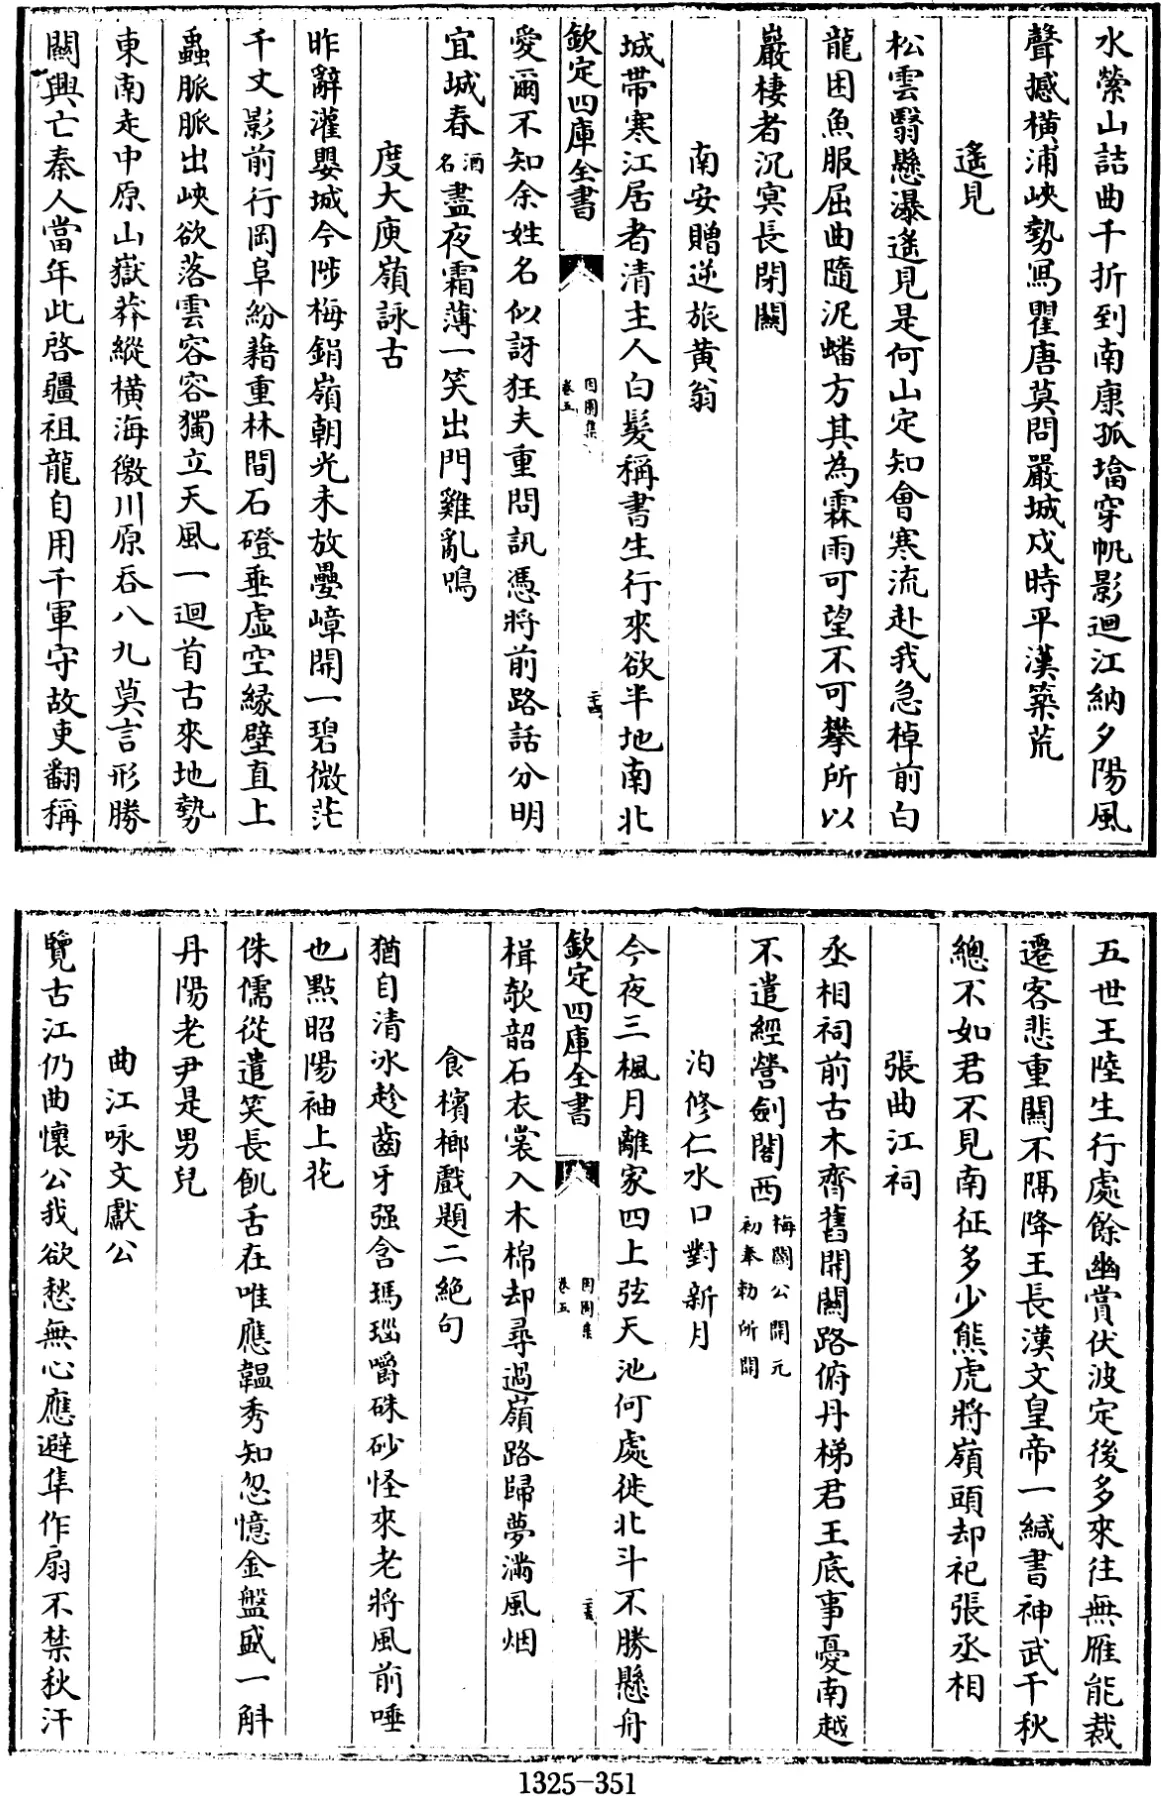 水縈山詰曲千折到南康孤塔穿帆影迴江納夕陽風
聲撼橫浦峽勢寫瞿唐莫問嚴城戍時平漢築荒
遙見
松雲翳懸瀑遙見是何山定知會寒流赴我急棹前白
龍困魚服屈曲隨泥蟠方其為霖雨可望不可攀所以
巖棲者沉冥長閉關
南安贈逆旅黃翁
城帶寒江居者清主人白髮稱書生行來欲半地南北
欽定四庫全書
因園集
卷五
愛爾不知余姓名似訝狂夫重問訊憑將前路話分明
宜城春酒名盡夜霜薄一笑出門雞亂鳴
度大庾嶺詠古
昨辭灌嬰城今陟梅鋗嶺朝光未放疊嶂開一碧微茫
千丈影前行岡阜紛藉重林間石磴垂虛空緣壁直上
蝨脈脈出峽欲落雲容容獨立天風一迴首古來地勢
東南走中原山嶽莽縱橫海徼川原吞八九莫言形勝
關興亡秦人當年此啓疆祖龍自用千軍守故吏翻稱
五世王陸生行處餘幽賞伏波定後多來往無雁能裁
遷客悲重關不隔降王長漢文皇帝一緘書神武千秋
總不如君不見南征多少熊虎將嶺頭却祀張丞相
張曲江祠
丞相祠前古木齊舊開關路俯丹梯君王底事憂南越
不遣經營劍閣西梅關公開元初奉勅所開
泊修仁水口對新月
今夜三楓月離家四上弦天池何處徙北斗不勝懸舟
欽定四庫全書
因園集
卷五
楫欹韶石衣裳入木棉却尋過嶺路歸夢滿風烟
食檳榔戲題二絕句
猶自清冰趁齒牙强含瑪瑙嚼硃砂怪來老將風前唾
也點昭陽袖上花
侏儒從遣笑長飢舌在唯應韞秀知忽憶金盤盛一斛
丹陽老尹是男兒
曲江咏文獻公
覽古江仍曲懷公我欲愁無心應避隼作扇不禁秋汗
1325-351